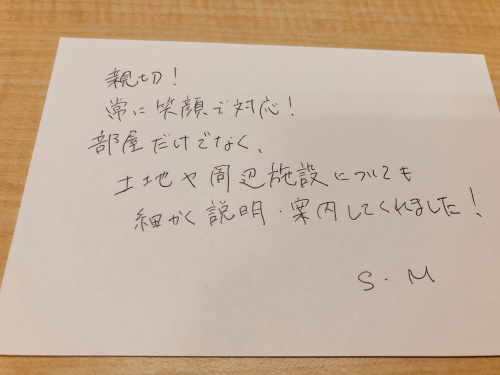 親切！
常に笑顔で対応！
部屋だけでなく、
土地や周辺施設についても
細かく説明・案内してくれました！
S.M